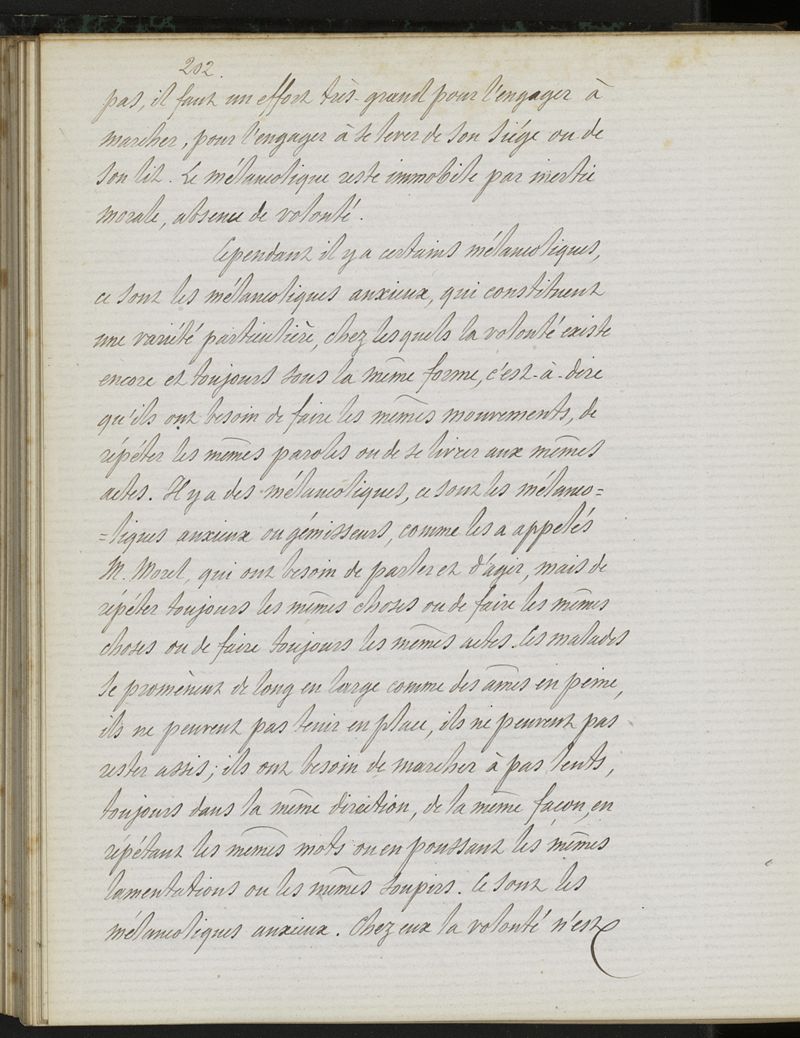 202.
pas, il faut un effort très-grand pour l'engager à
marcher, pour l'engager à se lever de son siége ou de
son lit. Le mélancolique reste immobile par inertie
morale, absence de volonté.
Cependant il y a certains mélancoliques,
ce sont les mélancoliques anxieux, qui constituent
une variété particulière, chez lesquels la volonté existe
encore et toujours sous la même forme, c'est-à-dire
qu'ils ont besoin de faire les mêmes mouvements, de
répéter les mêmes paroles ou de se livrer aux mêmes
actes. Il y a des mélancoliques, ce sont les mélanco=
=liques anxieux ou gémisseurs, comme les a appelés
M. Morel, qui ont besoin de parler et d'agir, mais de
répéter toujours les mêmes choses ou de faire les mêmes
choses ou de faire toujours les mêmes actes. Ces malades
se promènent de long en large comme des âmes en peine,
ils ne peuvent pas tenir en place, ils ne peuvent pas
rester assis; ils ont besoin de marcher à pas lents,
toujours dans la même direction, de la même façon, en
répétant les mêmes mots ou en poussant les mêmes
lamentations ou les mêmes soupirs. Ce sont les
mélancoliques anxieux. Chez eux la volonté n'est